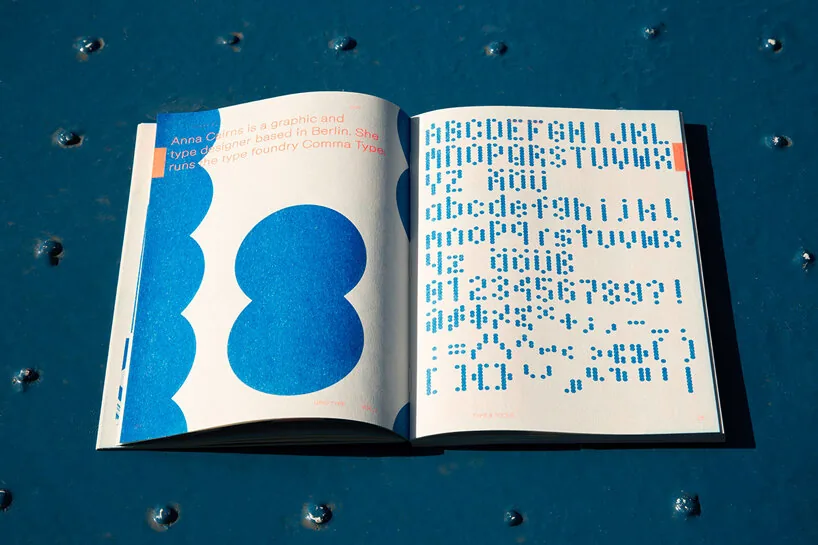 Anna Cairns is a graphic and
type designer based in Berlin. She
runs the type foundry Comma Type.
ABCDEFGHIJKL
MNOPQRSTUVWX
YZ ÄÖÜ
abcdefghijkl
mnopqrstuvwx
yz äöüß
0123456789?!
[ ]{}